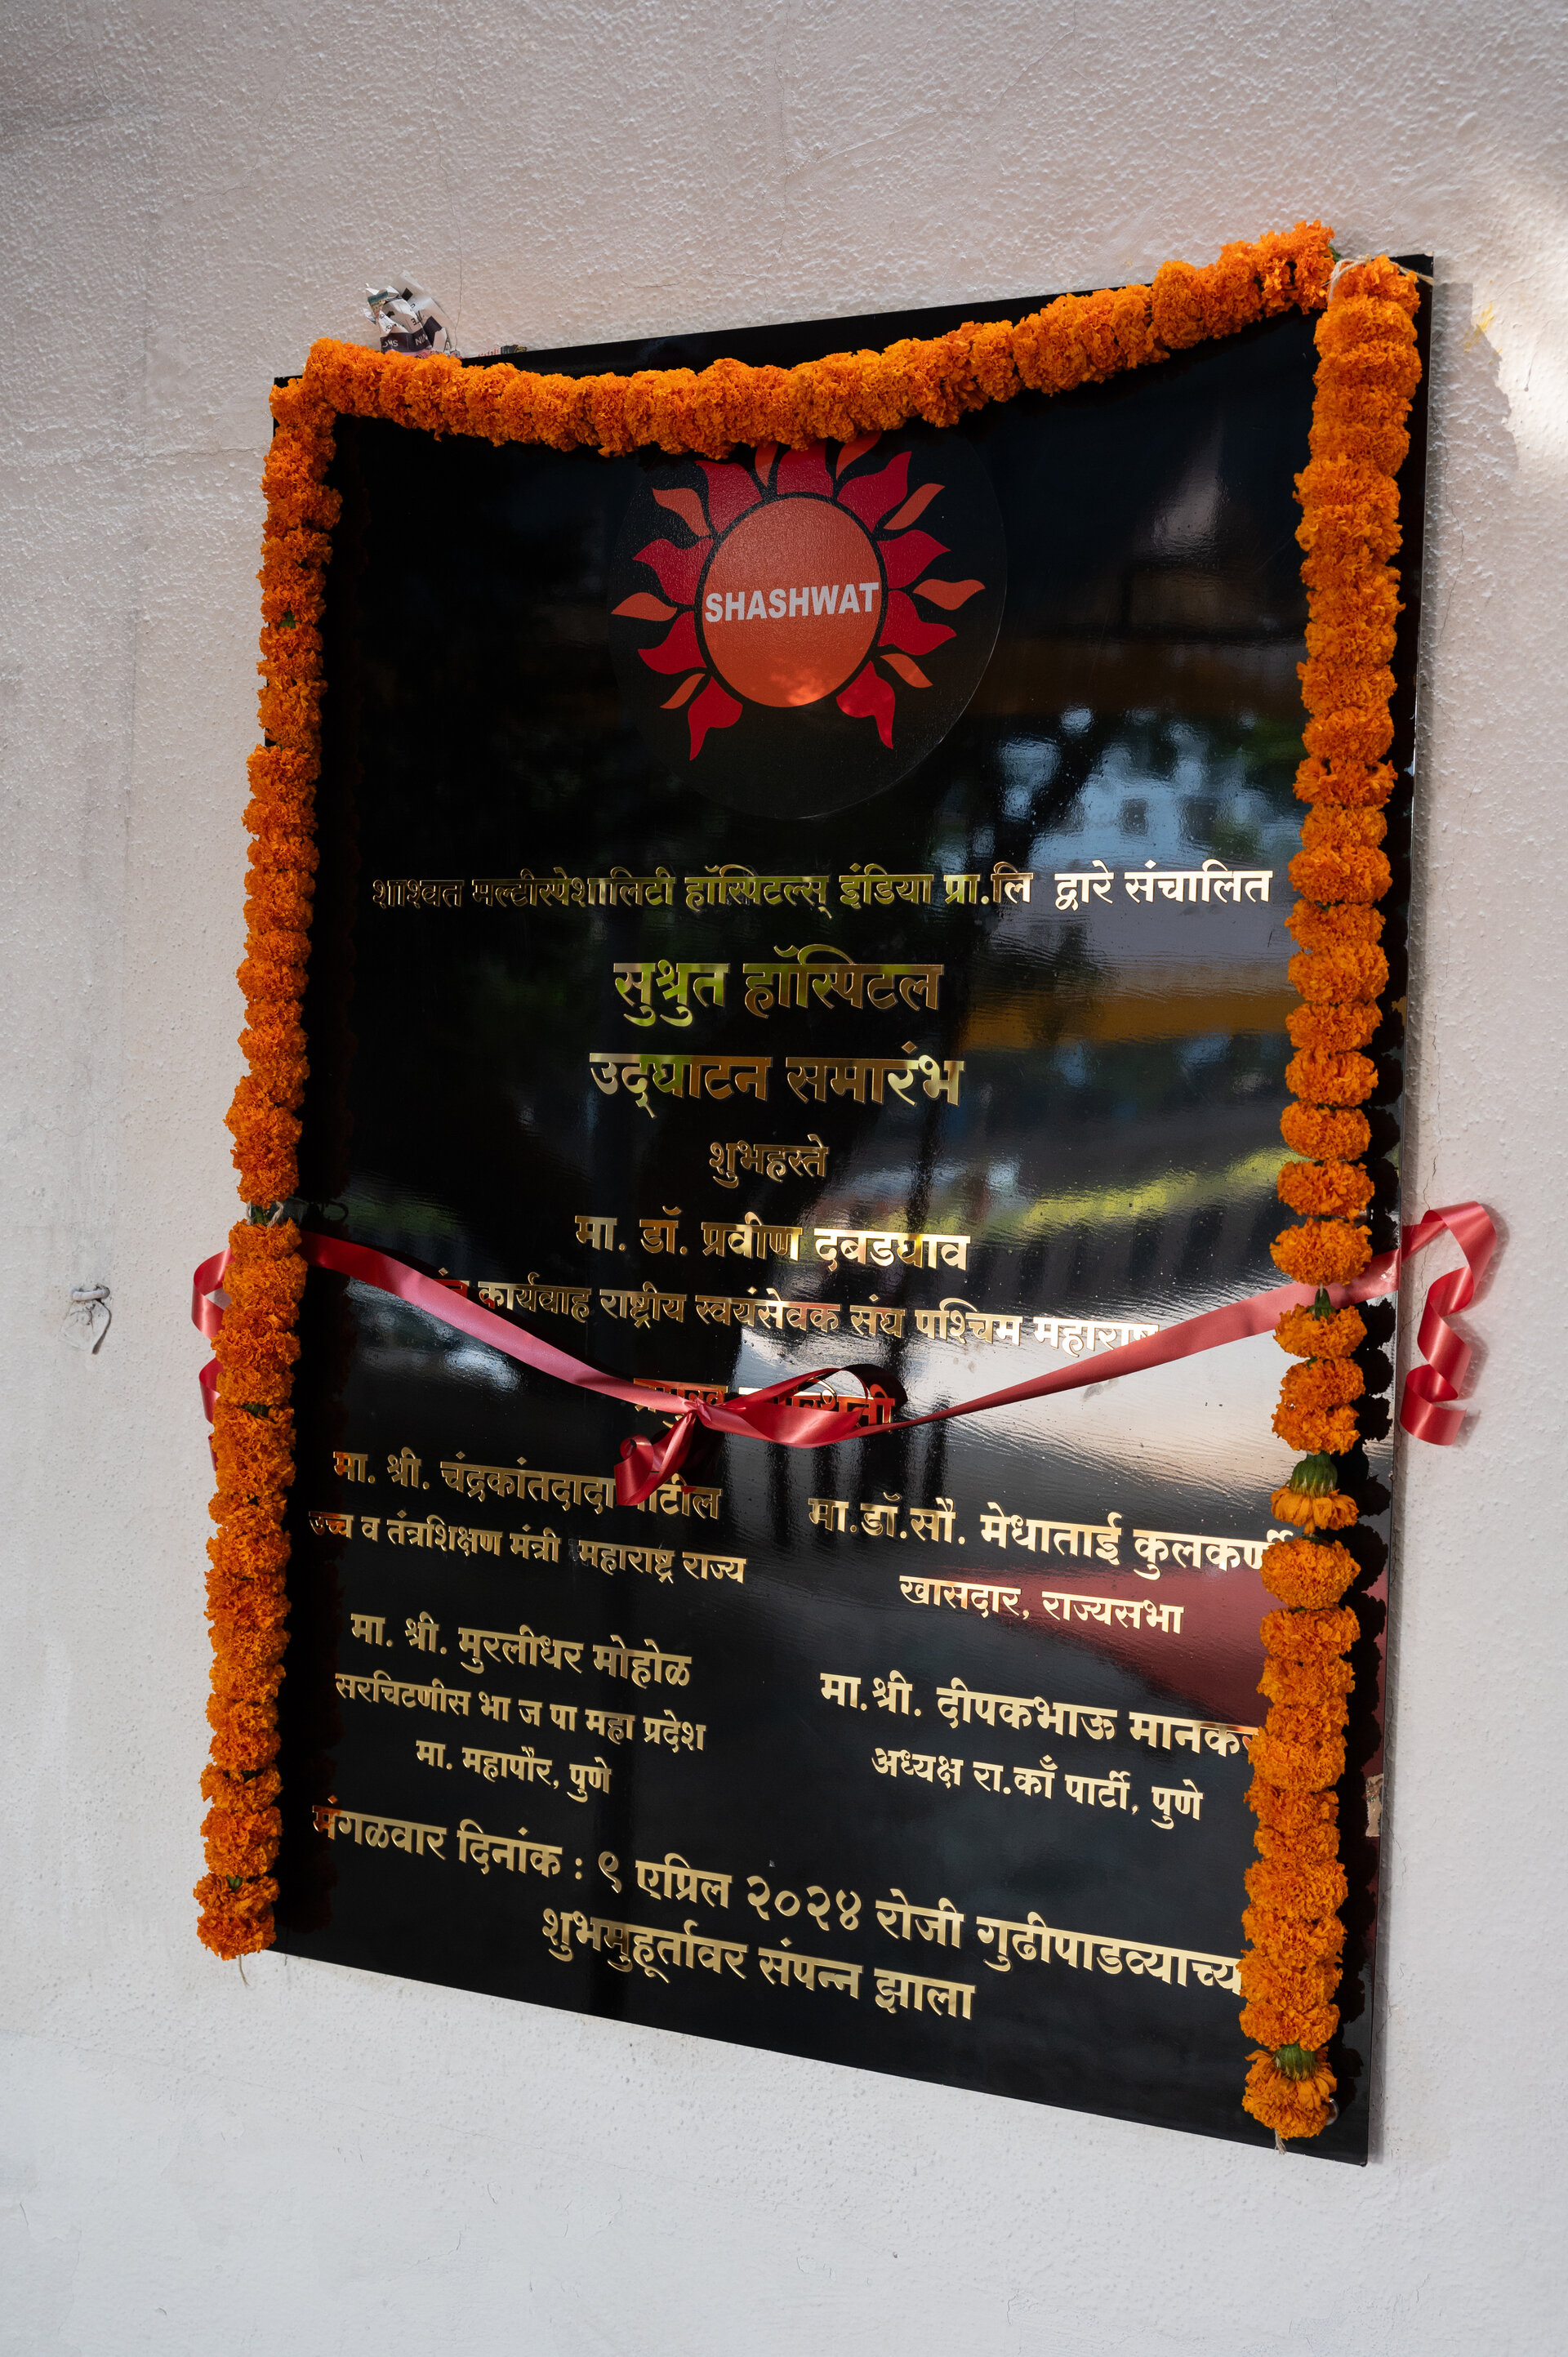 SHASHWAT
शाश्वत मल्टीस्पेशालिटी हॉस्पिटल्स् इंडिया प्रा.लि द्वारे संचालित
सुश्रुत हॉस्पिटल
उद्‌घाटन समारंभ
शुभहस्ते
मा. डॉ. प्रवीण दबडघाव
कार्यवाह राष्ट्रीय स्वयंसेवक संघ पश्चिम
मा. श्री. चंद्रकांतदादा
उच्च व तंत्रशिक्षण मंत्री महाराष्ट्र राज्य
मा. श्री. मुरलीधर मोहोळ
सरचिटणीस भा ज पा महा प्रदेश
मा. महापौर, पुणे
मा.डॉ.सौ. मेधाताई कुलकर्णी
खासदार, राज्यसभा
मा.श्री. दीपकभाऊ
अध्यक्ष रा.काँ पार्टी, पुणे
मंगळवार दिनांक : ९ एप्रिल २०२४ रोजी गुढीपाडव्याच्या
शुभमुहूर्तावर संपन्न झाला